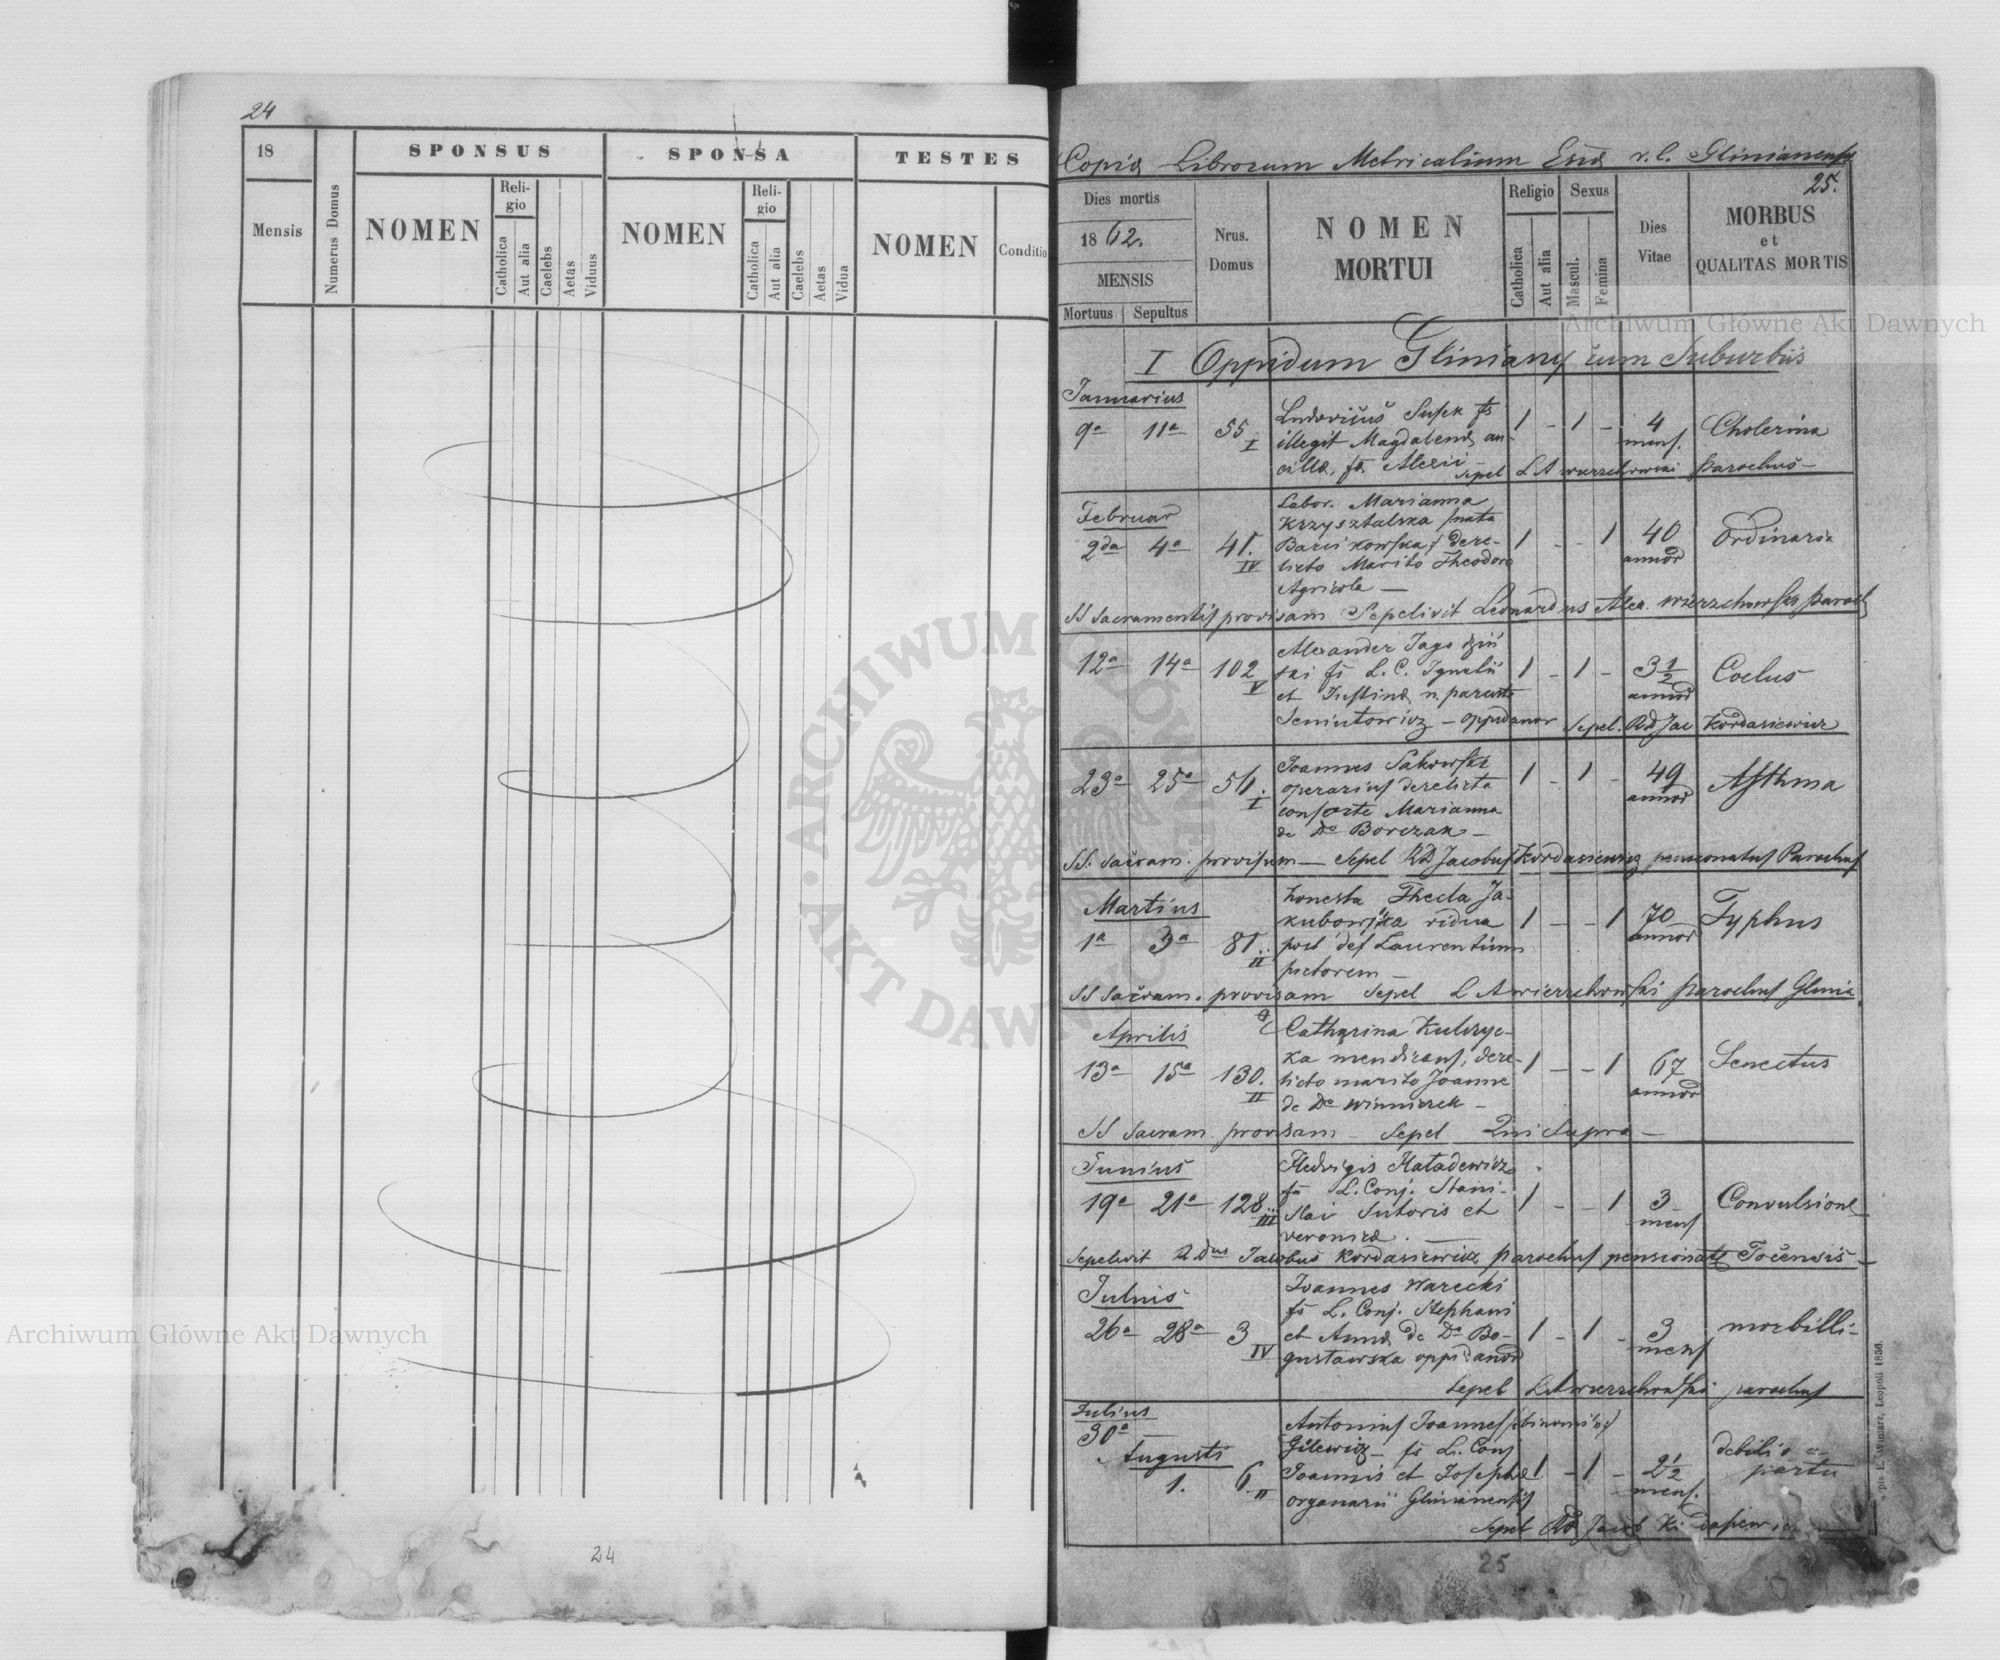 24
18
SPONSUS
SPONSA
TESTES
Mensis
Numerus Domus
NOMEN
Religio
Catholica
Aut alia
Caelebs
Aetas
Viduus
NOMEN
Religio
Catholica
Aut alia
Caelebs
Aetas
Vidua
NOMEN
Conditio
24
Copia Librorum Metricalium r. l. Glinianensis
25.
Dies mortis
1862.
MENSIS
Mortuus
Sepultus
Nrus. Domus
NOMEN MORTUI
Religio
Catholica
Aut alia
Sexus
Mascul.
Femina
Dies Vitae
MORBUS
et
QUALITAS MORTIS
I Oppidum Gliniany cum Suburbiis
Januarius
9a 11a 55 I
Ludovicus Susek fs
illegit Magdalenae an-
cillae, fae Alexii
1 - 1 - 4 mens. Cholerina
Sepel L A Wierzchowski Parochus
Februar
2da 4a 41. IV
Labor. Marianna
Krzysztalska nata
derelicto Marito Theodoro
Agricola —
1 - - 1 40 annor Ordinaria
SS Sacramentis provisam Sepelivit Leonardus Alex. Wierzchowski Paroch
12a 14a 102 V
Alexander Jagodziń
ski fs L. C. Ignatii
et Justinae n. parente
Seniutowicz — oppidanor
1 - 1 - 3 1/2 annor Coelus
Sepel. RD Jac Kordasiewicz
23a 25a 51. I
Joannes Sakowski
operarius derelicta
consorte Marianna
de Do Borczak —
1 - 1 - 49 annor Asthma
SS. Sacram. provisum — Sepel RD Jacobus Kordasiewicz pensionatus Parochus
Martius
1a 3a 81. II
honesta Thecla Ja-
kubowska vidua
post def Laurentium
pictorem —
1 - - 1 70 annor Typhus
SS Sacram. provisam Sepel L A Wierzchowski Parochus Glinia
Aprilis
13a 15a 130. II
Catharina Kulczyc-
ka mendicans, dere-
licto marito Joanne
de Do Winniczek —
1 - - 1 67 annor Senectus
SS Sacram provisam — Sepel Qui Supra —
Junius
19a 21a 128 III
Hedvigis Hatadewicz
fa L. Conj. Stani-
slai Sutoris et
Veronicae. —
1 - - 1 3 mens Convulsione
Sepelivit R Dus Jacobus Kordasiewicz parochus pensionatus
Julius
26a 28a 3 IV
Joannes Warecki
fs L. Conj. Stephani
et Annae de Do Bo-
gustawska oppidanor
1 - 1 - 3 mens morbilli
Sepel L A Wierzchowski parochus
Julius
30a
Augusti
1. 6 II
Antonius Joannes (binomi
Gilewicz — fs L. Conj
Joannis et Josephae
organarii Glinianensis
1 - 1 - 2 1/2 mens. debilis a partu
Sepel RD Jacob
25
E. Winiarz, Leopoli 1856.
Archiwum Główne Akt Dawnych
Archiwum Główne Akt Dawnych
ARCHIWUM GŁÓWNE AKT DAWNYCH